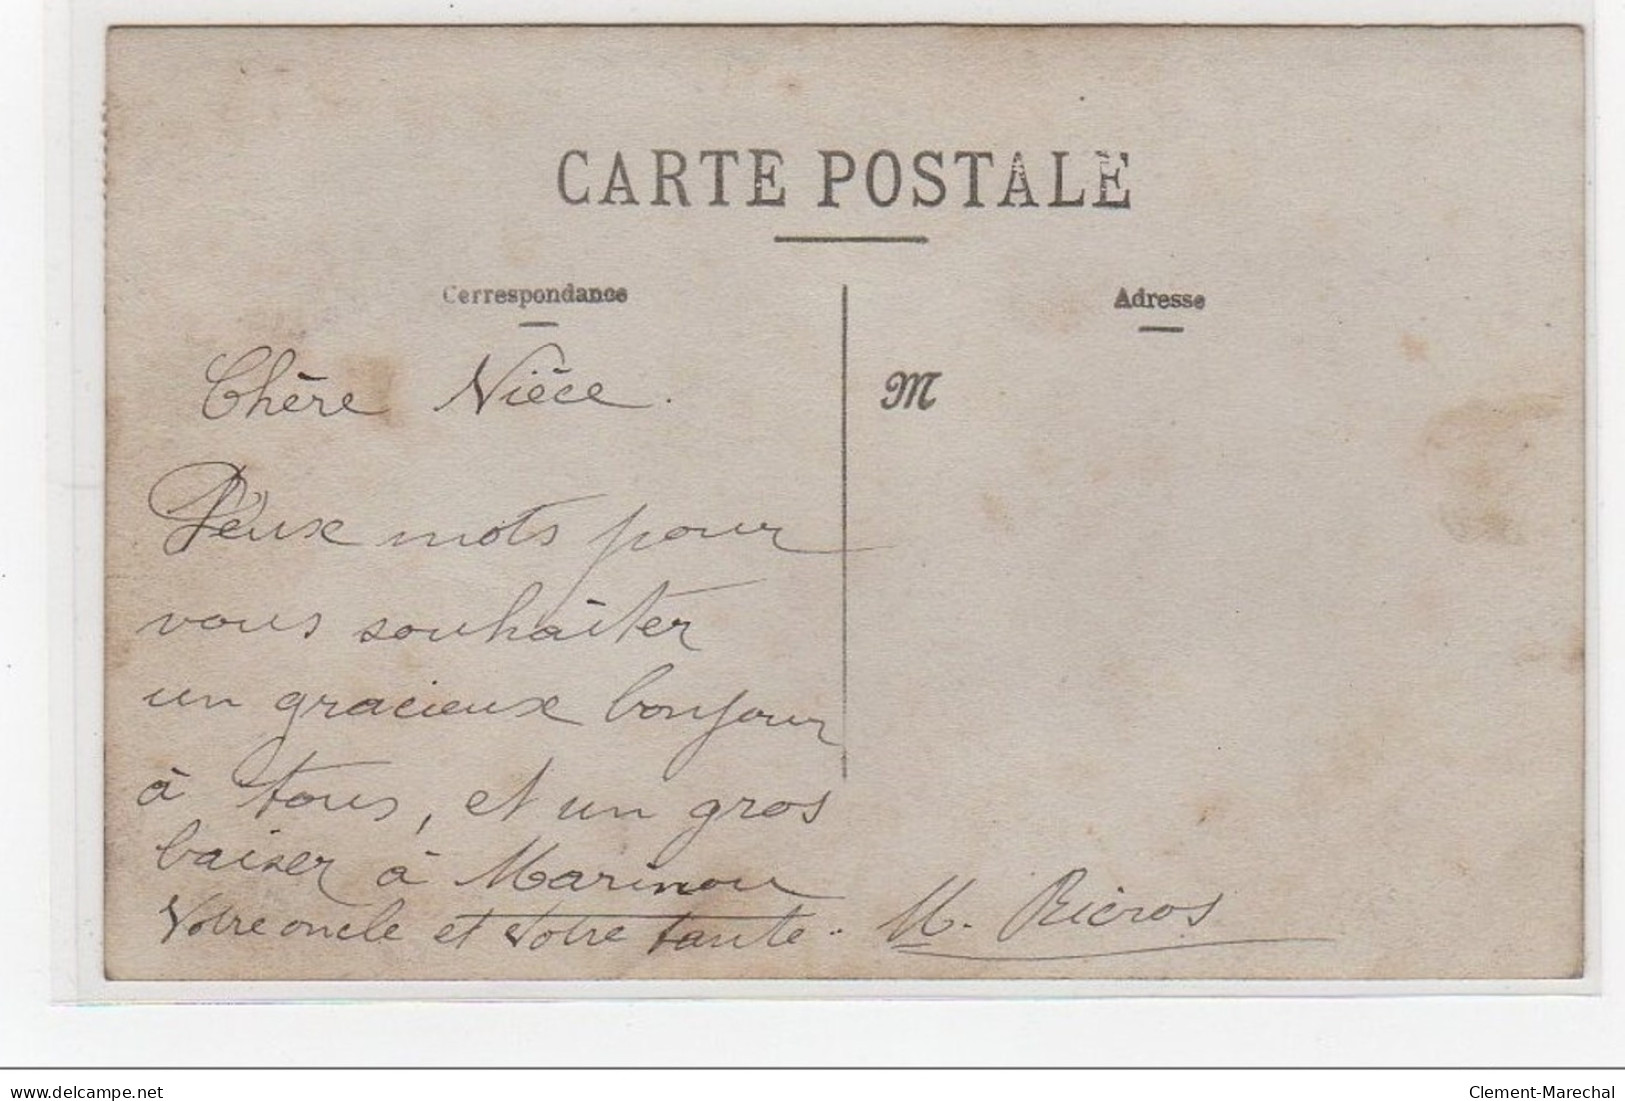 CARTE POSTALE
Correspondance
Adresse
M
Chère Nièce.
Deux mots pour
vous souhaiter
un gracieux bonjour
à tous, et un gros
baiser à Marinou
Votre oncle et votre tante.. M. Ricros
delcampe.net
Clement-Marechal